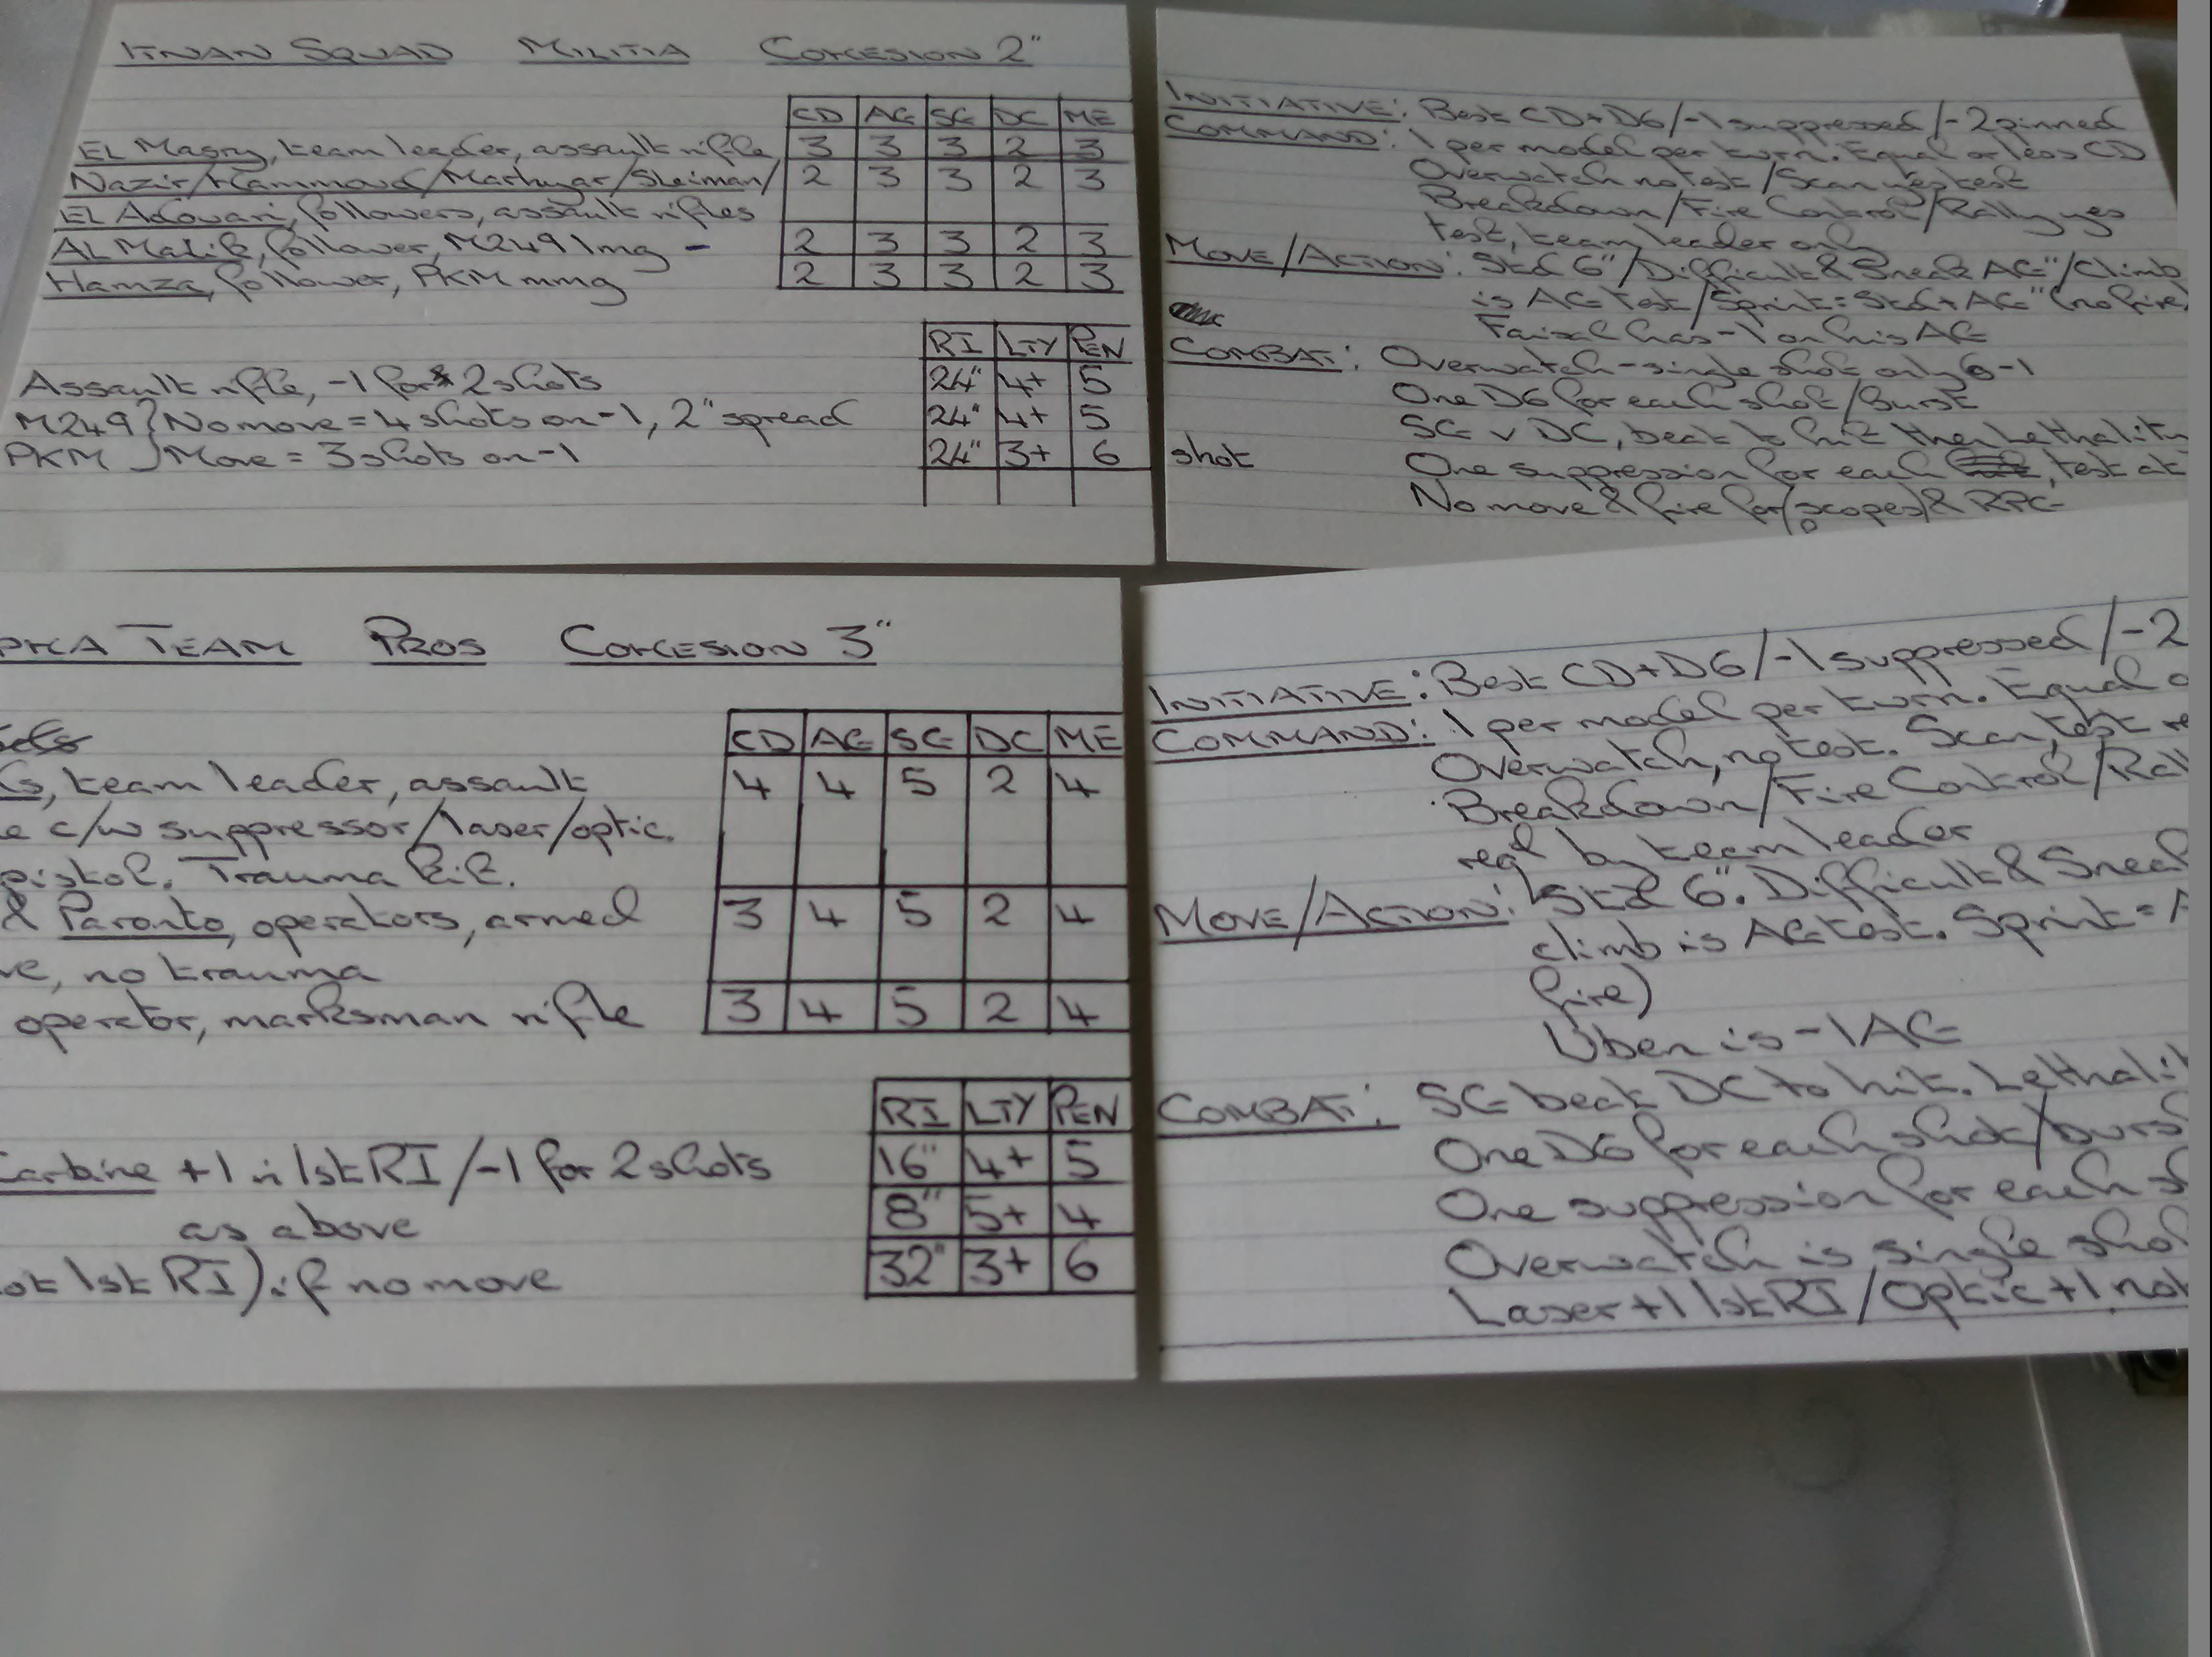 ITNAN SQUAD MILITIA COHESION 2"
CD AG SG DC ME
EL Masry, team leader, assault rifle 3 3 3 2 3
Nazir/Hammoud/Marhyar/Sleiman/ 2 3 3 2 3
EL Adouari, followers, assault rifles
AL Malik, follower, M249 lmg - 2 3 3 2 3
Hamza, follower, PKM mmg 2 3 3 2 3
RI LTY PEN
Assault rifle, -1 for 2 shots 24" 4+ 5
M249 } No move = 4 shots on -1, 2" spread 24" 4+ 5
PKM } Move = 3 shots on -1 24" 3+ 6
INITIATIVE: Best CD+D6/-1 suppressed/-2 pinned
COMMAND: 1 per model per turn. Equal or less CD
Overwatch no test/Scan yes test
Breakdown/Fire Control/Rally yes
test, team leader only
MOVE/ACTION: Std 6"/Difficult & Sneak AG"/Climb
is AG test/Sprint = Std + AG" (no fire)
Faisal has -1 on his AG
COMBAT: Overwatch - single shot only -1
One D6 for each shot/Burst
SG v DC, beat to hit then Lethality
shot One suppression for each , test at
No move & fire for (scopes) & RPG
PHA TEAM PROS COHESION 3"
CD AG SG DC ME
, team leader, assault 4 4 5 2 4
e c/w suppressor/laser/optic.
pistol. Trauma kit.
& Paronto, operators, armed 3 4 5 2 4
ve, no trauma
operator, marksman rifle 3 4 5 2 4
RI LTY PEN
Carbine +1 in 1st RI/-1 for 2 shots 16" 4+ 5
as above 8" 5+ 4
ot 1st RI) if no move 32" 3+ 6
INITIATIVE: Best CD+D6/-1 suppressed/-2
COMMAND: 1 per model per turn. Equal o
Overwatch, no test. Scan, test re
Breakdown/Fire Control/Ral
reqd by team leader
MOVE/ACTION: Std 6". Difficult & Snea
climb is AG test. Sprint = A
fire)
Uben is -1 AG
COMBAT: SG beat DC to hit. Lethalit
One D6 for each shot/burs
One suppression for each s
Overwatch is single sho
Laser +1 1st RI/Optic +1 not